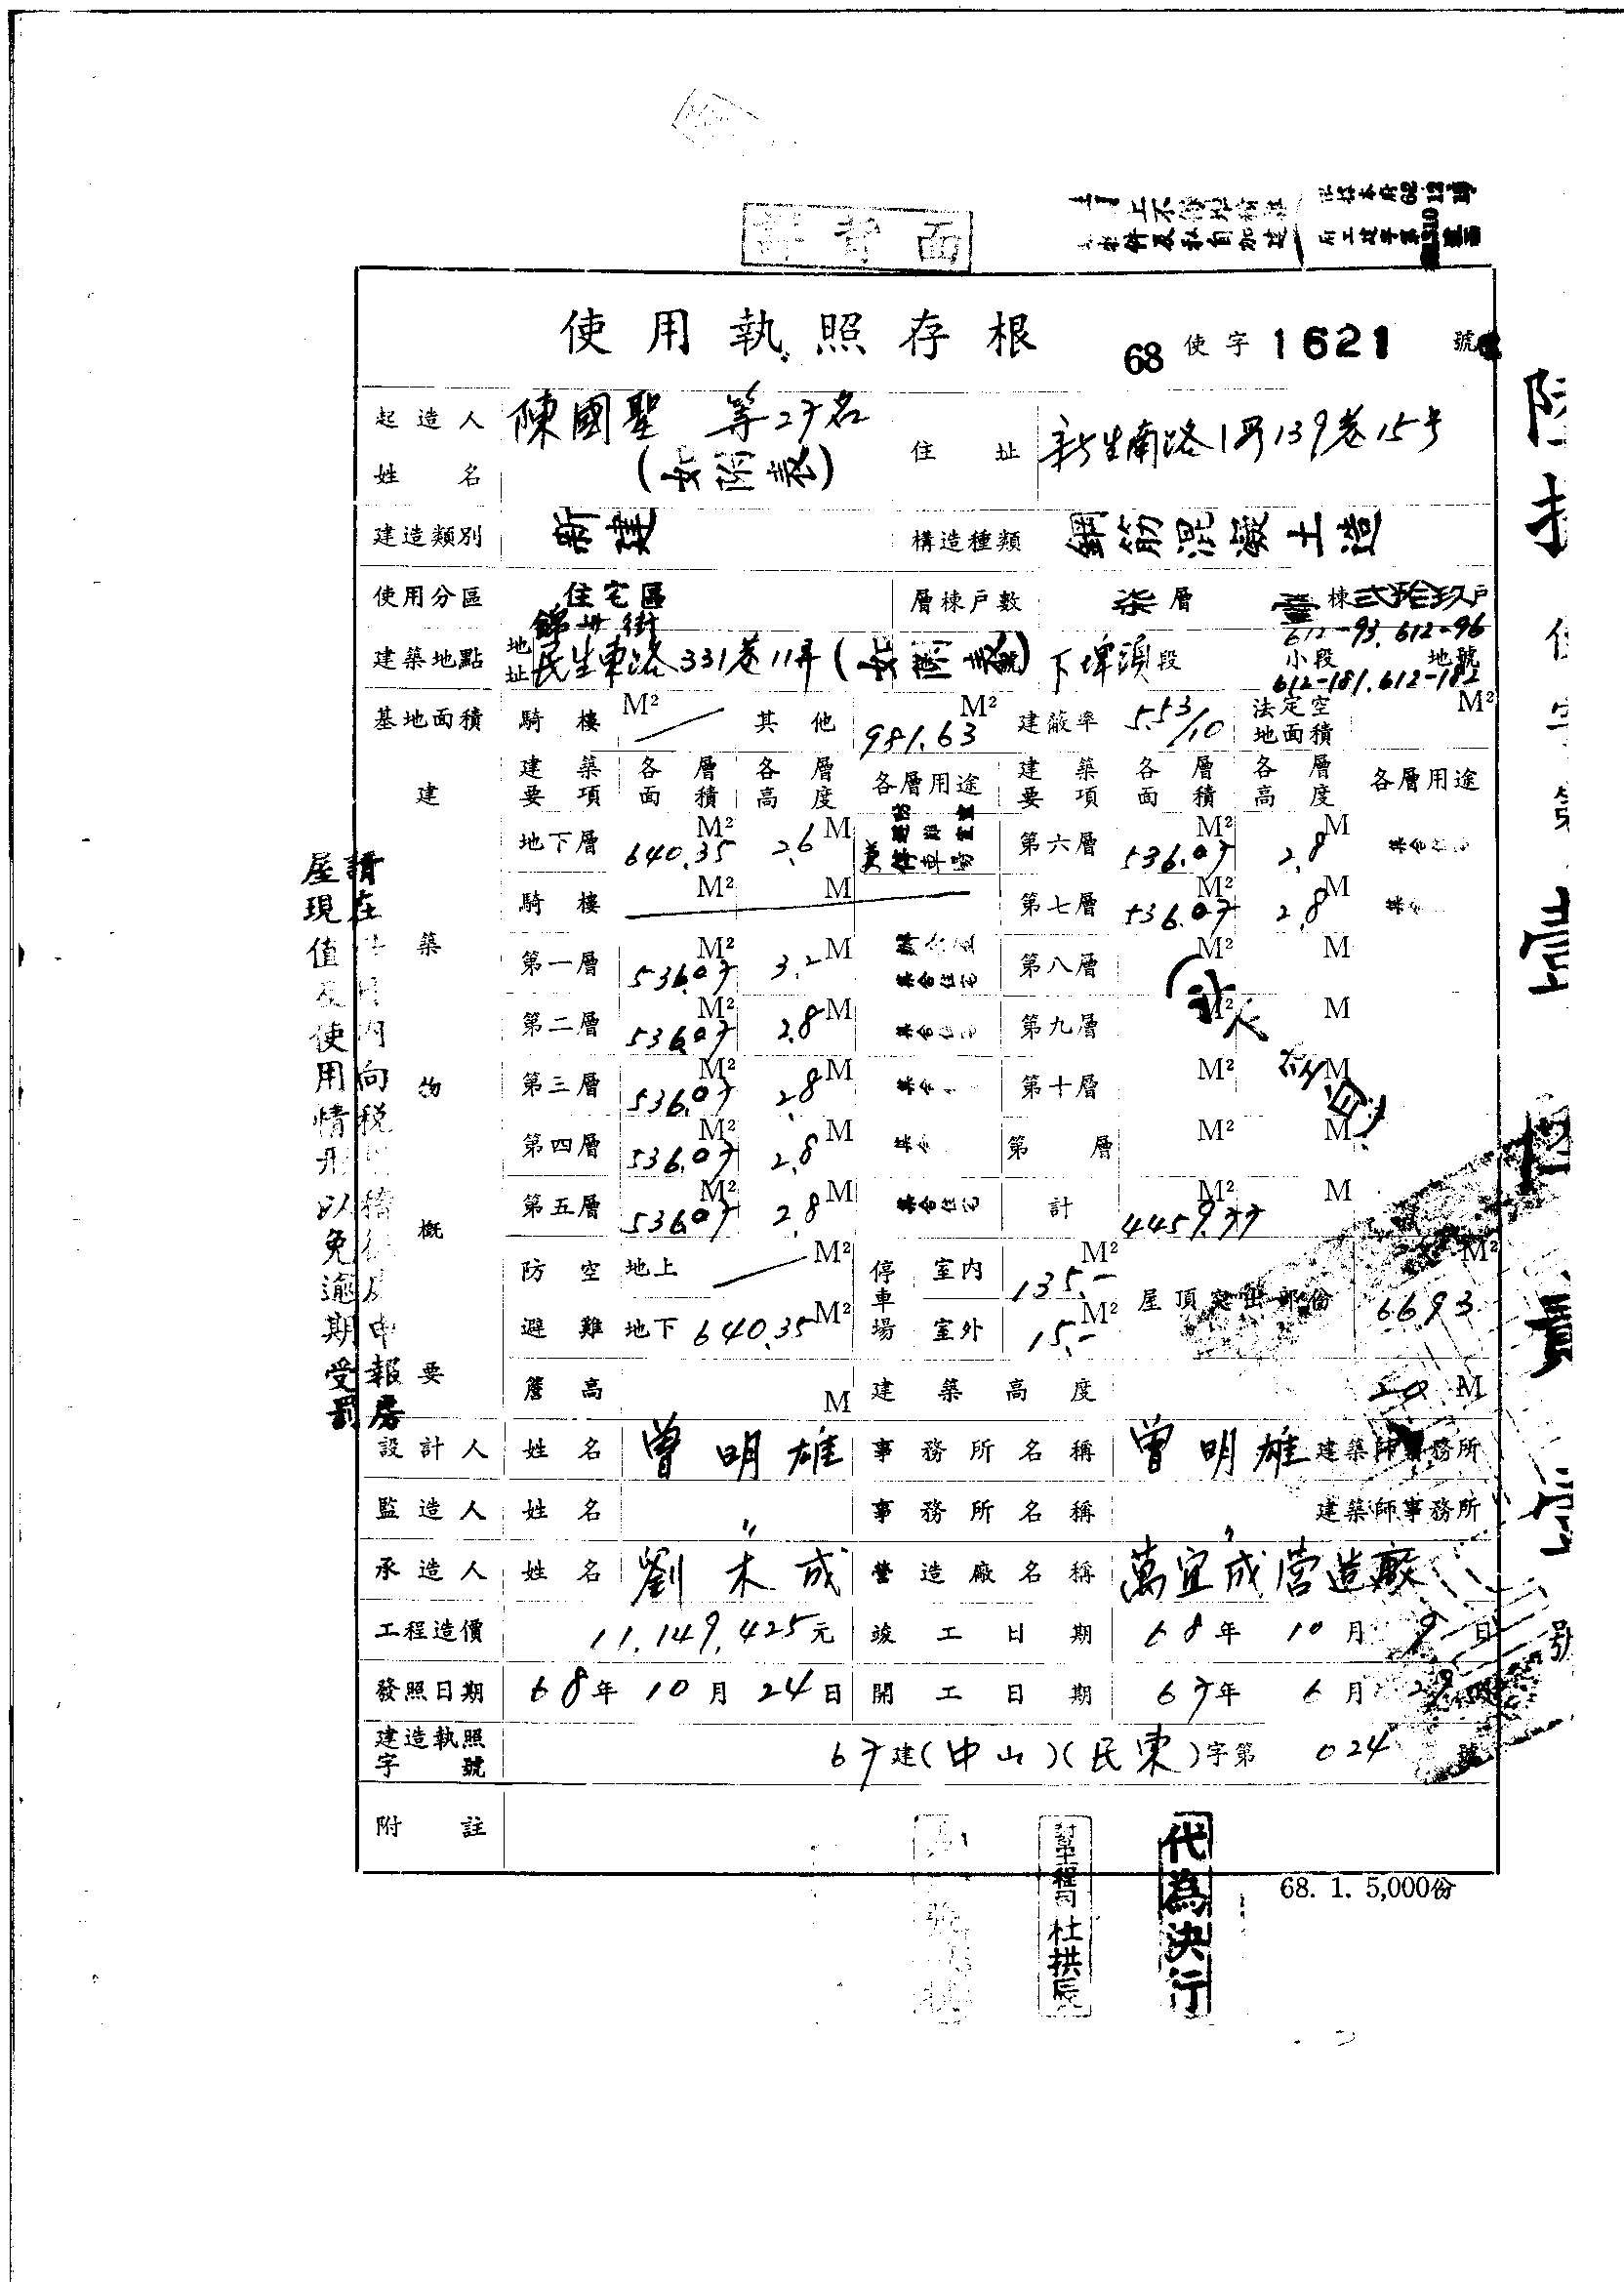 詳背面
使用執照存根 68使字1621號
起造人姓名 陳國聖 等27名 (如附表) 住址 新生南路1段139巷15号
建造類別 新建 構造種類 鋼筋混凝土造
使用分區 住宅區 層棟戶數 柒層 壹棟弍拾玖戶
錦州街 612-93.612-96
建築地點 地址 民生東路331巷11弄(如附表)號 下埤頭段 小段 地號
612-181.612-182
基地面積 騎樓 M² 其他 981.63 M² 建蔽率 5.53/10 法定空地面積 M²
建築物概要
建築要項 各層面積 各層高度 各層用途 建築要項 各層面積 各層高度 各層用途
地下層 640.35 M² 2.6 M 第六層 536.07 M² 2.8 M
騎樓 M² M 第七層 536.07 M² 2.8 M
第一層 536.07 M² 3.2 M 第八層 M² M
第二層 536.07 M² 2.8 M 第九層 M² M
第三層 536.07 M² 2.8 M 第十層 M² M
第四層 536.07 M² 2.8 M 第 層 M² M
第五層 536.07 M² 2.8 M 集合住宅 計 4459.77 M² M
防空避難 地上 M² 停車場 室內 135.- M² 屋頂突出部份 66.93 M²
地下 640.35 M² 室外 15.- M²
簷高 M 建築高度 20 M
設計人 姓名 曾明雄 事務所名稱 曾明雄 建築師事務所
監造人 姓名 〃 事務所名稱 〃 建築師事務所
承造人 姓名 劉木成 營造廠名稱 萬宜成营造廠
工程造價 11,149,425元 竣工日期 68年10月9日
發照日期 68年10月24日 開工日期 67年6月29日
建造執照字號 67建(中山)(民東)字第024號
附註
68. 1. 5,000份
代為決行